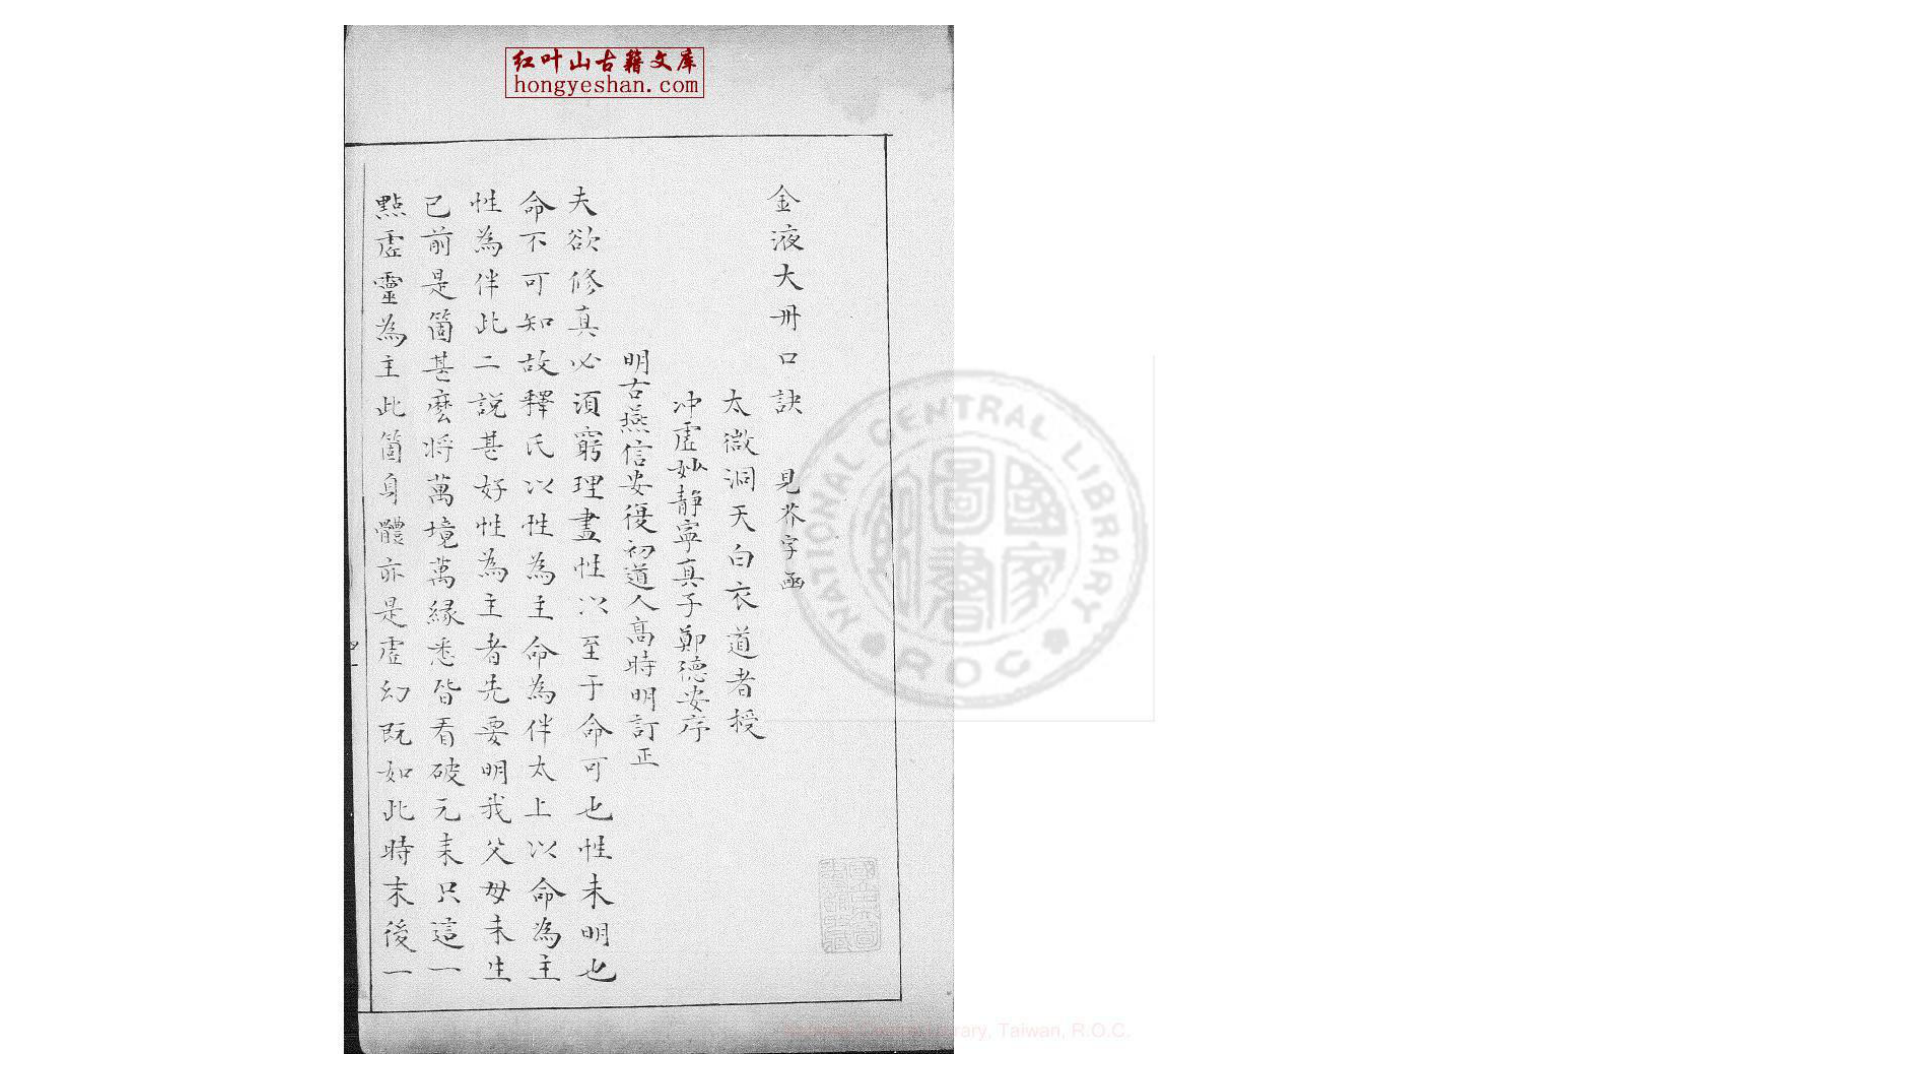 红叶山古籍文库
hongyeshan.com
金液大丹口訣 見芥字函
太微洞天白衣道者授
冲虛妙靜寧真子鄭德安序
明古燕信安復初道人高時明訂正
夫欲修真必須窮理盡性以至于命可也性未明也
命不可知故釋氏以性為主命為伴太上以命為主
性為伴此二説甚好性為主者先要明我父母未生
已前是箇甚麼將萬境萬緣悉皆看破元来只這一
點虛靈為主此箇身體亦是虛幻既如此時末後一
NATIONAL CENTRAL LIBRARY
R.O.C
國家圖書館
Library, Taiwan, R.O.C.